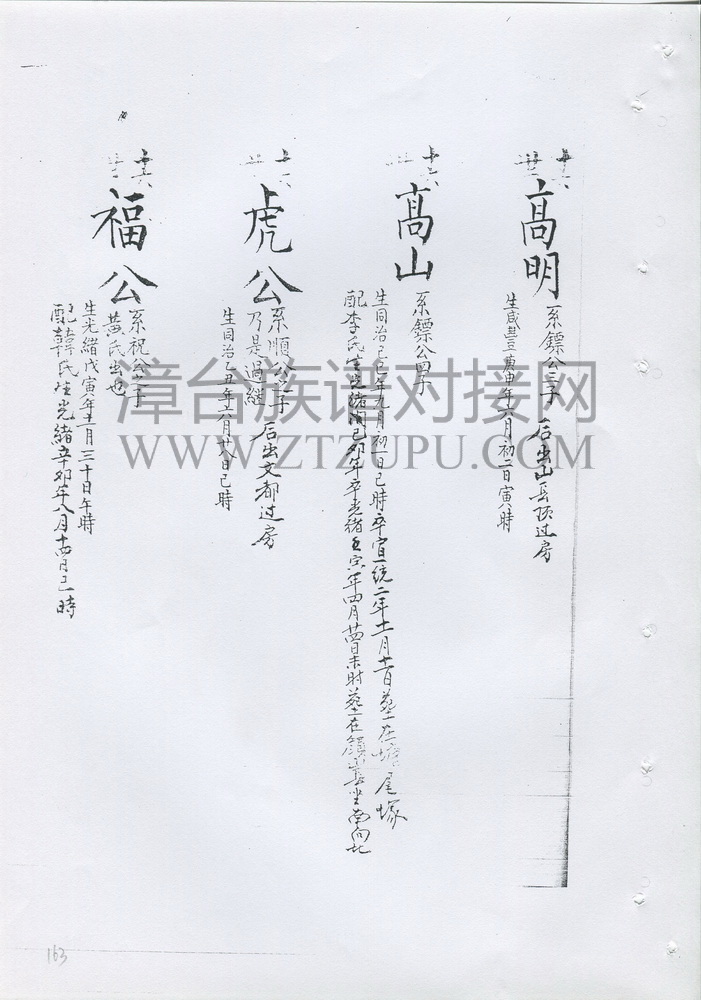 十六
高明
系鏢公三子 后出山長頂过房
生咸豐庚申年六月初二日寅時
十六
高山
系鏢公四子
生同治己巳年九月初一日巳時卒宣統二年十一月十一日墓在 尾塚
配李氏生光緒閏己卯年卒光緒壬寅年四月廿四日未時墓在 坐南向北
十六
虎公
系順公之子 后出文都过房
乃是過継
生同治乙丑年六月廿八日巳時
十六
福公
系祝公之子
黄氏出也
生光緒戊寅年十一月三十日午時
配韓氏生光緒辛卯年八月十四日巳時
漳台族谱对接网
WWW.ZTZUPU.COM
163